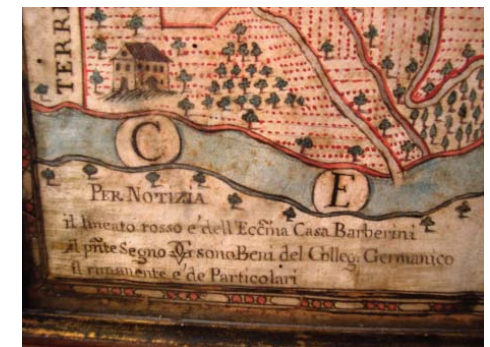 TERRE
C
E
PER NOTIZIA
il lineato rosso e' dell'Eccma Casa Barberini
Il pnte Segno sono Beni del Colleg. Germanico
Il rimanente e' de Particolari